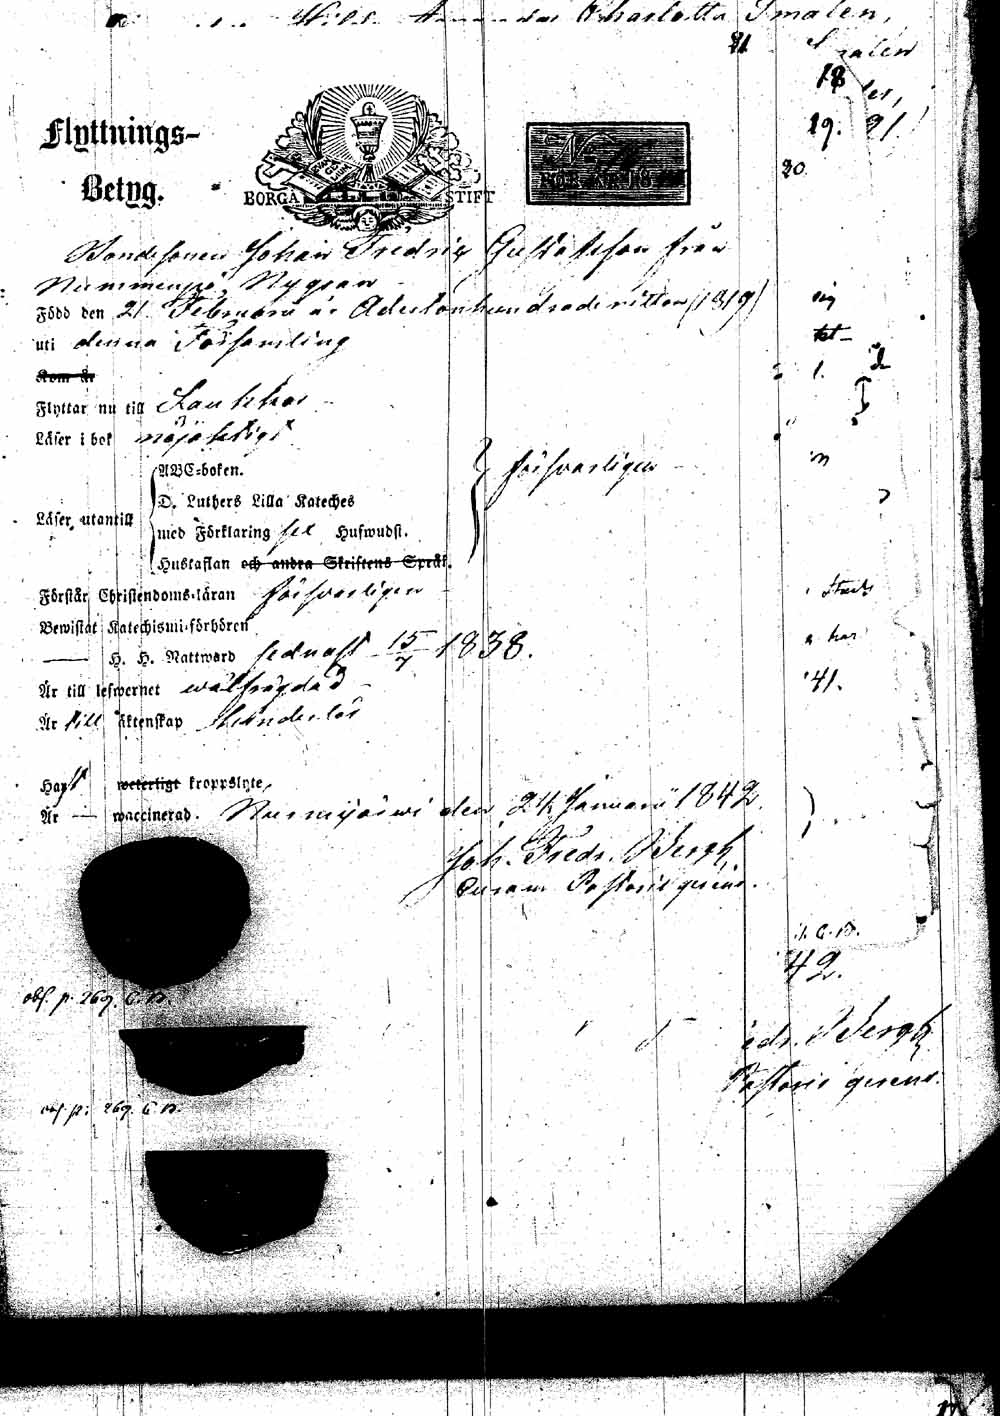 Charlotta Smalen,
21
18
19. 21.
20.
Flyttnings-
Betyg.
BORGÅ STIFT
N
FÖR ÅR 18
Bondesonen Johan Fredric Gustafsson från
Nummenpä, Nygran
Född den 21 Februari år Adertonhundradenitton (1819)
uti denna Församling
Kom år
Flyttar nu till
Läser i bok nöjaktigt
Läser utantill
ABC-boken.
D. Luthers Lilla Kateches
med Förklaring sex Hufwudst.
Hustaflan och andra Skriftens Språk.
försvarligen
Förstår Christendoms-läran försvarligen
Bewistat Katechismi-förhören
— H. H. Nattward sednast 15/7 1838.
Är till lefwernet wälfrägdad
Är till äktenskap hinderlös
Haft weterligt kroppslyte,
Är — waccinerad. Nurmijärwi den 24 Januarii 1842.
Joh. Fredr. Bergh
curam Pastoris gerens.
41.
42.
obs. p. 269. C.B.
edr. Bergh
Pastoris gerens.
obs. p: 269. C.B.